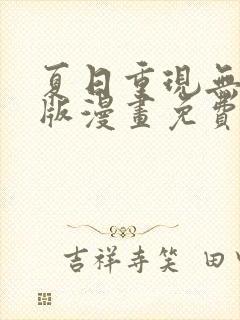 夏日重現無
版漫畫免費
吉祥寺笑 田